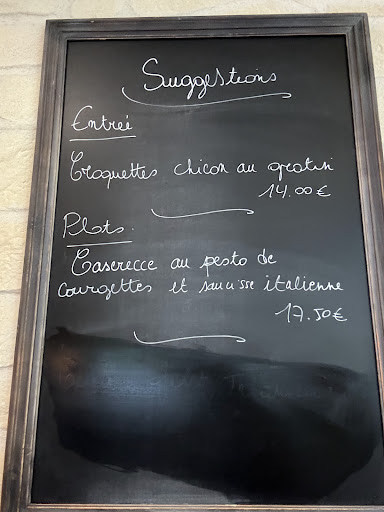 Suggestions
Entrée
Croquettes chicon au gratin
14.00€
Plats.
Caserecce au pesto de
courgettes et saucisse italienne
17.50€